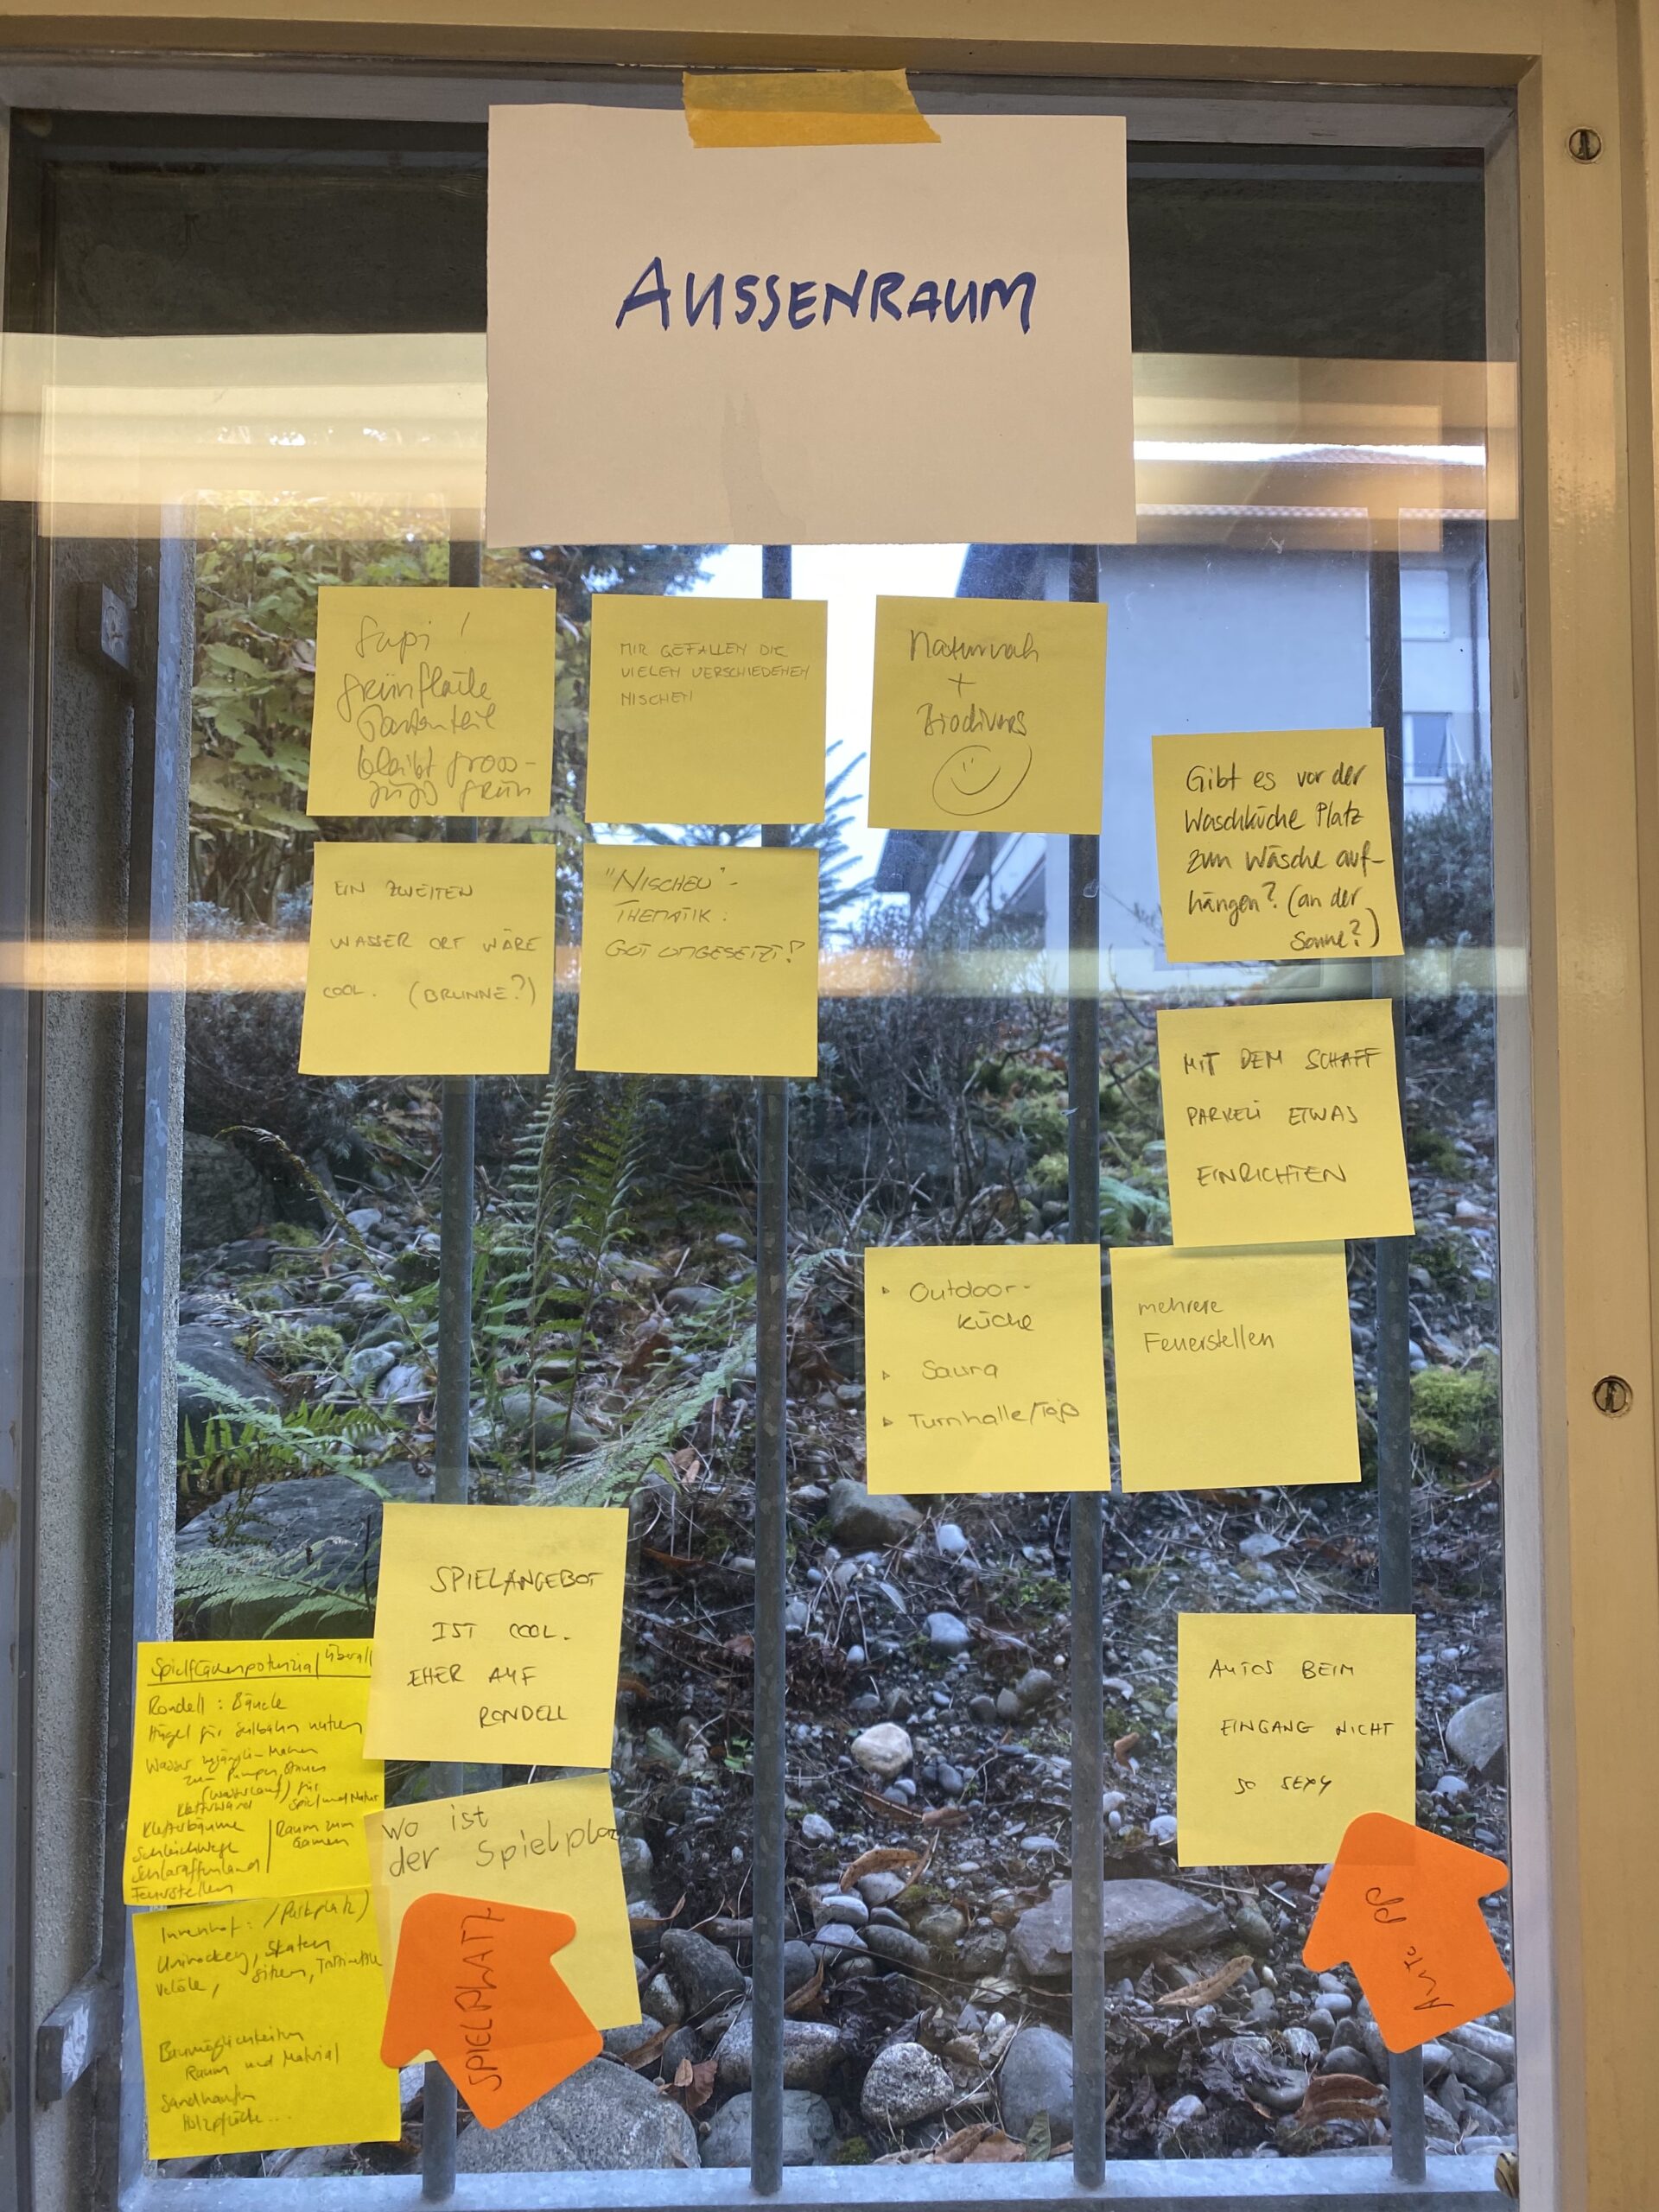 AUSSENRAUM
Supi!
Grünfläche
Gartenteil
bleibt gross-
grün
MIR GEFALLEN DIE
VIELEN VERSCHIEDENEN
NISCHEN
Naturnah
+
Biodivers
Gibt es vor der
Waschküche Platz
zum Wäsche auf-
hängen? (an der
Sonne?)
EIN ZWEITEN
WASSER ORT WÄRE
COOL. (BRUNNE?)
"NISCHEN"-
THEMATIK:
GUT UMGESETZT!
MIT DEM SCHAFF
PARKELI ETWAS
EINRICHTEN
Outdoor-
küche
Sauna
Turnhalle/
mehrere
Feuerstellen
SPIELANGEBOT
IST COOL.
EHER AUF
RONDELL
AUTOS BEIM
EINGANG NICHT
SO SEXY
AUTO PP
Spielflächenpotenzial überall
Rondell: Bänke
Hügel für Seilbahn nutzen
Wasser
zum Pumpen, Stauen
(Wasserlauf) für
Kletterwand Spiel und Natur
Kletterbäume
Raum zum
Gamen
Schleichwege
Schlaraffenland
Feuerstellen
wo ist
der Spielplatz
SPIELPLATZ
Innenhof: /Parkplatz)
Unihockey, Skaten
Velöle, sitzen,
Baumöglichkeiten
Raum und Material
Sandhaufen
Holzpflöcke...